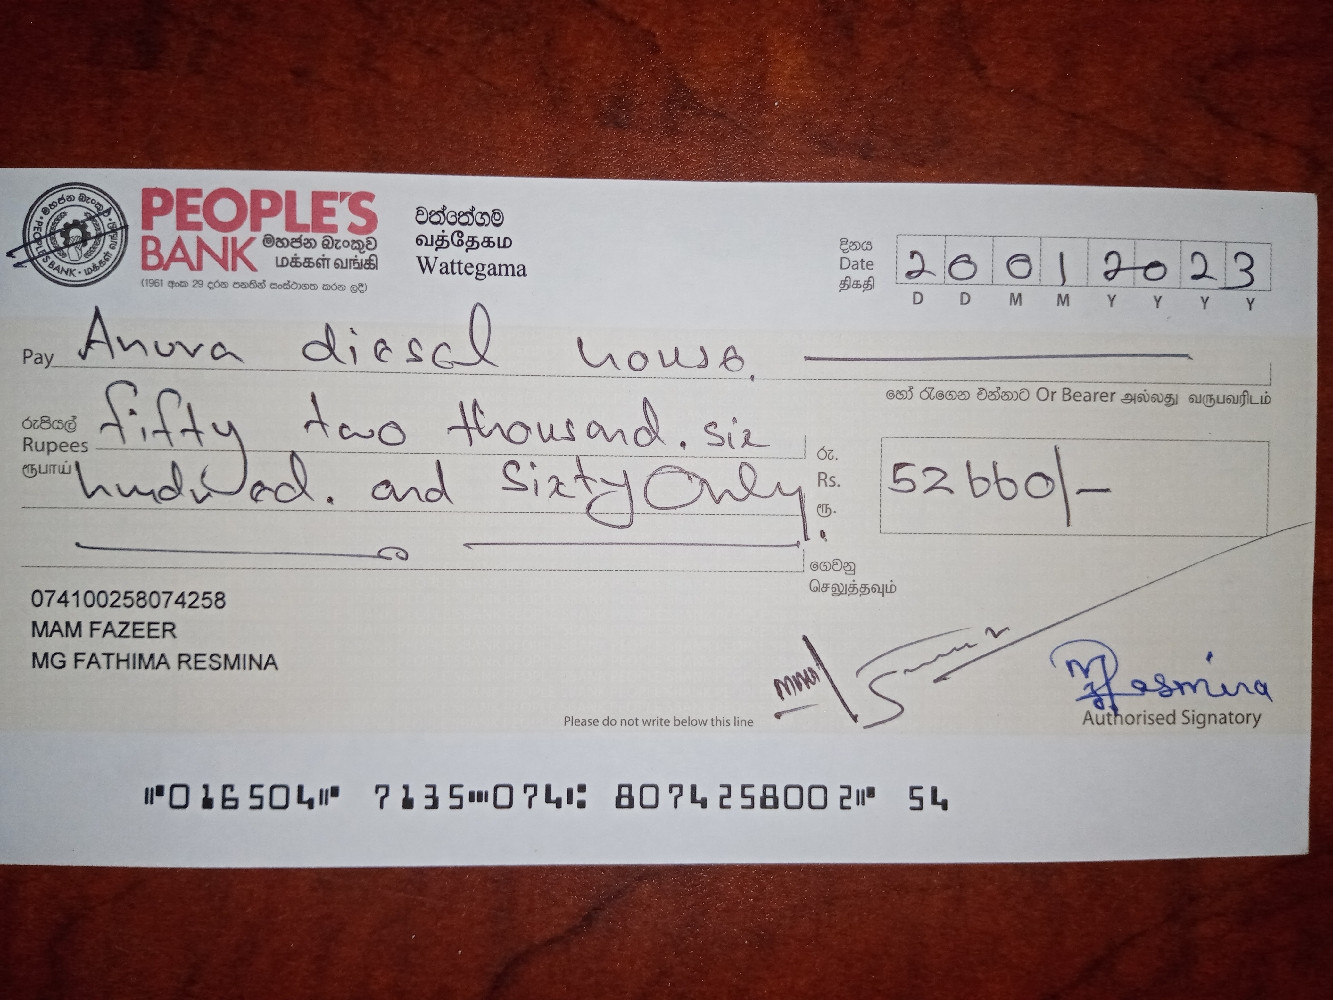 PEOPLE'S
BANK මහජන බැංකුව
மக்கள் வங்கி
(1961 අංක 29 දරන පනතින් සංස්ථාගත කරන ලදී)
වත්තේගම
வத்தேகம
Wattegama
දිනය
Date
திகதி
2 0 0 1 2 0 2 3
D D M M Y Y Y Y
Pay Anura diesel house.
හෝ රැගෙන එන්නාට Or Bearer அல்லது வருபவரிடம்
රුපියල්
Rupees
ரூபாய்
fifty two thousand. six
hundred. and Sixty Only
රු.
Rs.
ரூ.
52660/-
ගෙවනු
செலுத்தவும்
074100258074258
MAM FAZEER
MG FATHIMA RESMINA
Resmina
Please do not write below this line
Authorised Signatory
⑈016504⑈ 7135⑉074⑆ 8074258002⑈ 54